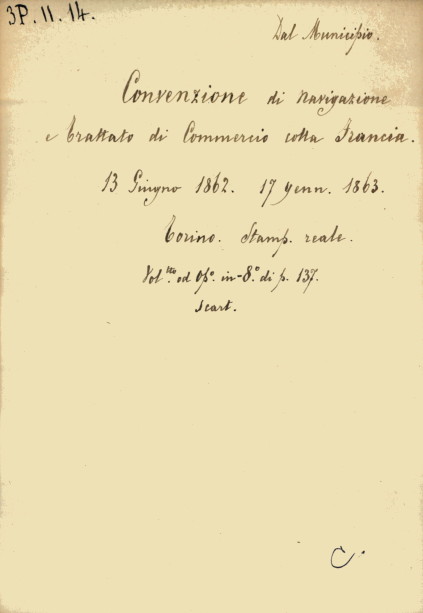 3P. 11. 14.
Dal Municipio.
Convenzione di navigazione
e Trattato di Commercio colla Francia.
13 Giugno 1862. 17 genn. 1863.
Torino. Stamp. reale.
Vol.tto od op.o in-8.o di p. 137.
scart.
C.